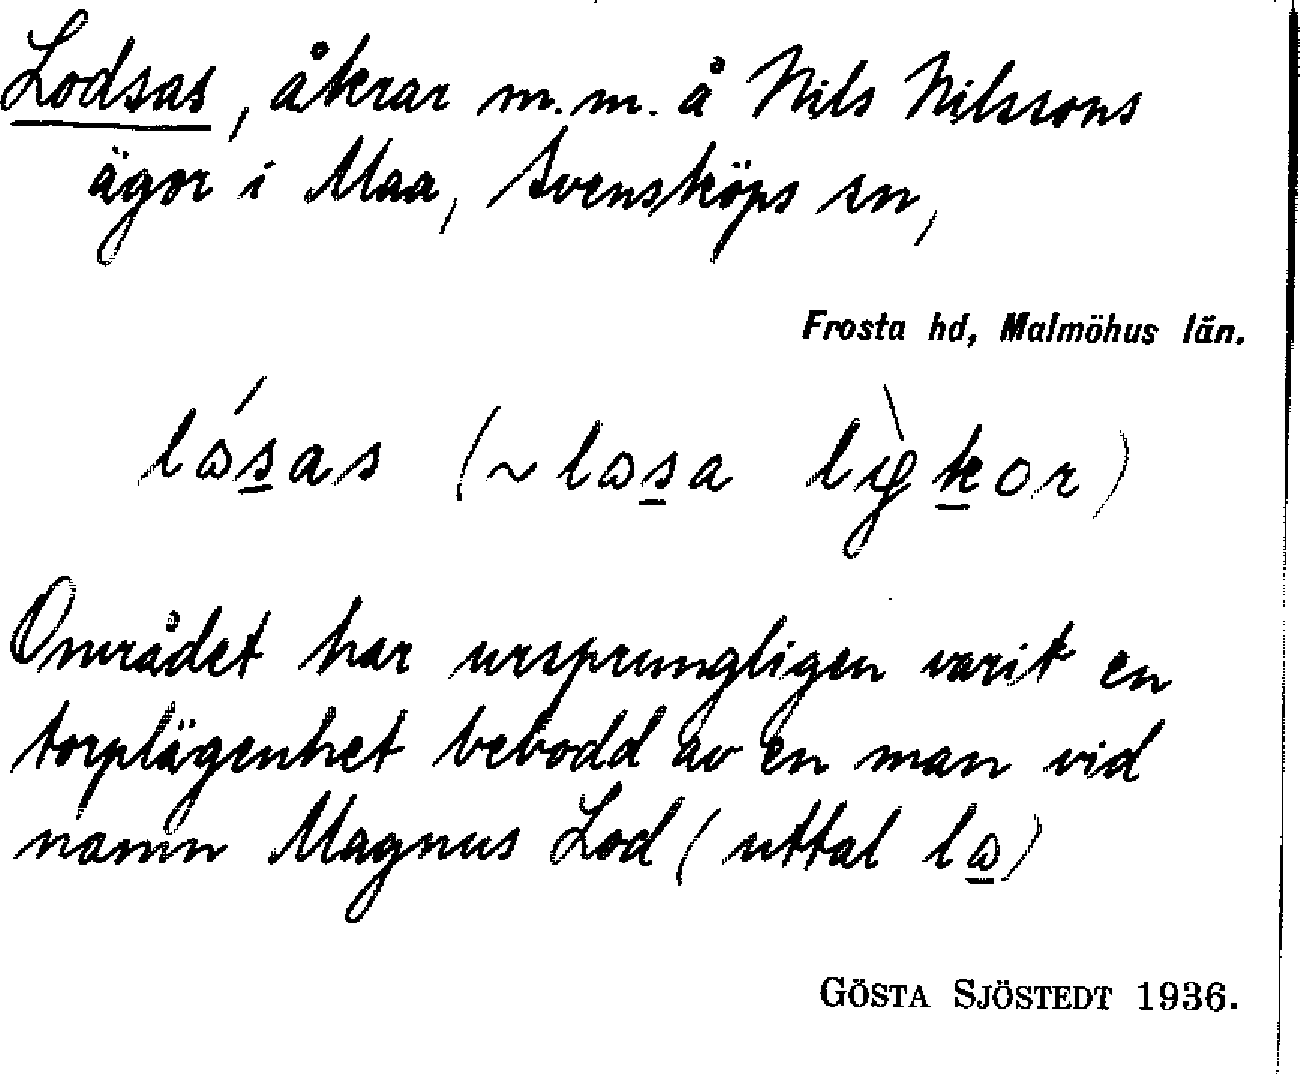 Lodsas, åkrar m.m. å Nils Nilssons
ägor i Maa, Svensköps sn,
Frosta hd, Malmöhus län.
Området har ursprungligen varit en
torplägenhet bebodd av en man vid
namn Magnus Lod (uttal lɷ)
GÖSTA SJÖSTEDT 1936.